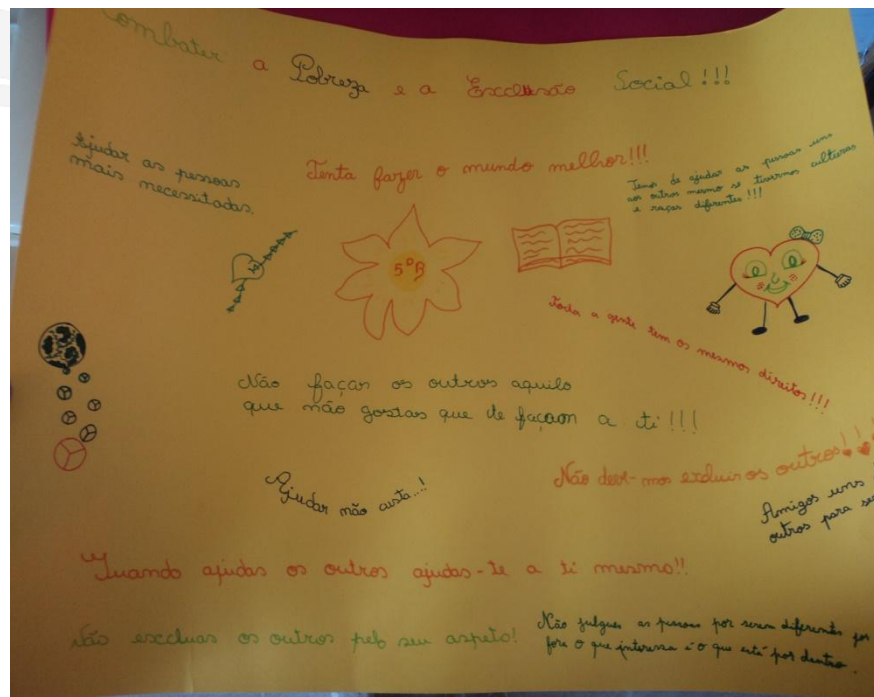 Combater a Pobreza e a Excclusão Social!!!
Ajudar as pessoas
mais necessitadas.
Tenta fazer o mundo melhor!!!
Temos de ajudar as pessoas uns
aos outros mesmo se tivermos culturas
e raças diferentes!!!
5ºB
Toda a gente tem os mesmos direitos!!!
Não faças os outros aquilo
que não gostas que te façam a ti!!!
Ajudar não custa...!
Não devt-mos excluir os outros!!
Amigos uns
outros para se
Quando ajudas os outros ajudas-te a ti mesmo!!
Não excluas os outros pelo seu aspeto!
Não julgues as pessoas por serem diferentes por
fora o que interessa é o que está por dentro.